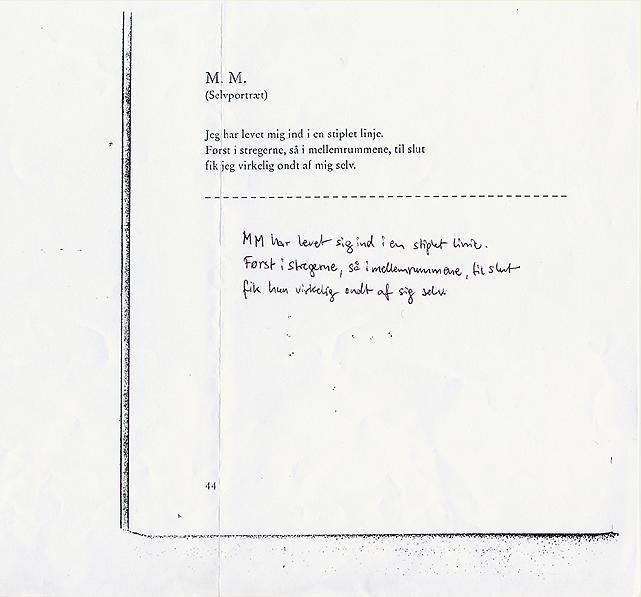 M. M.
(Selvportræt)
Jeg har levet mig ind i en stiplet linje.
Først i stregerne, så i mellemrummene, til slut
fik jeg virkelig ondt af mig selv.
MM har levet sig ind i en stiplet linie.
Først i stregerne, så i mellemrummene, til slut
fik hun virkelig ondt af sig selv.
44